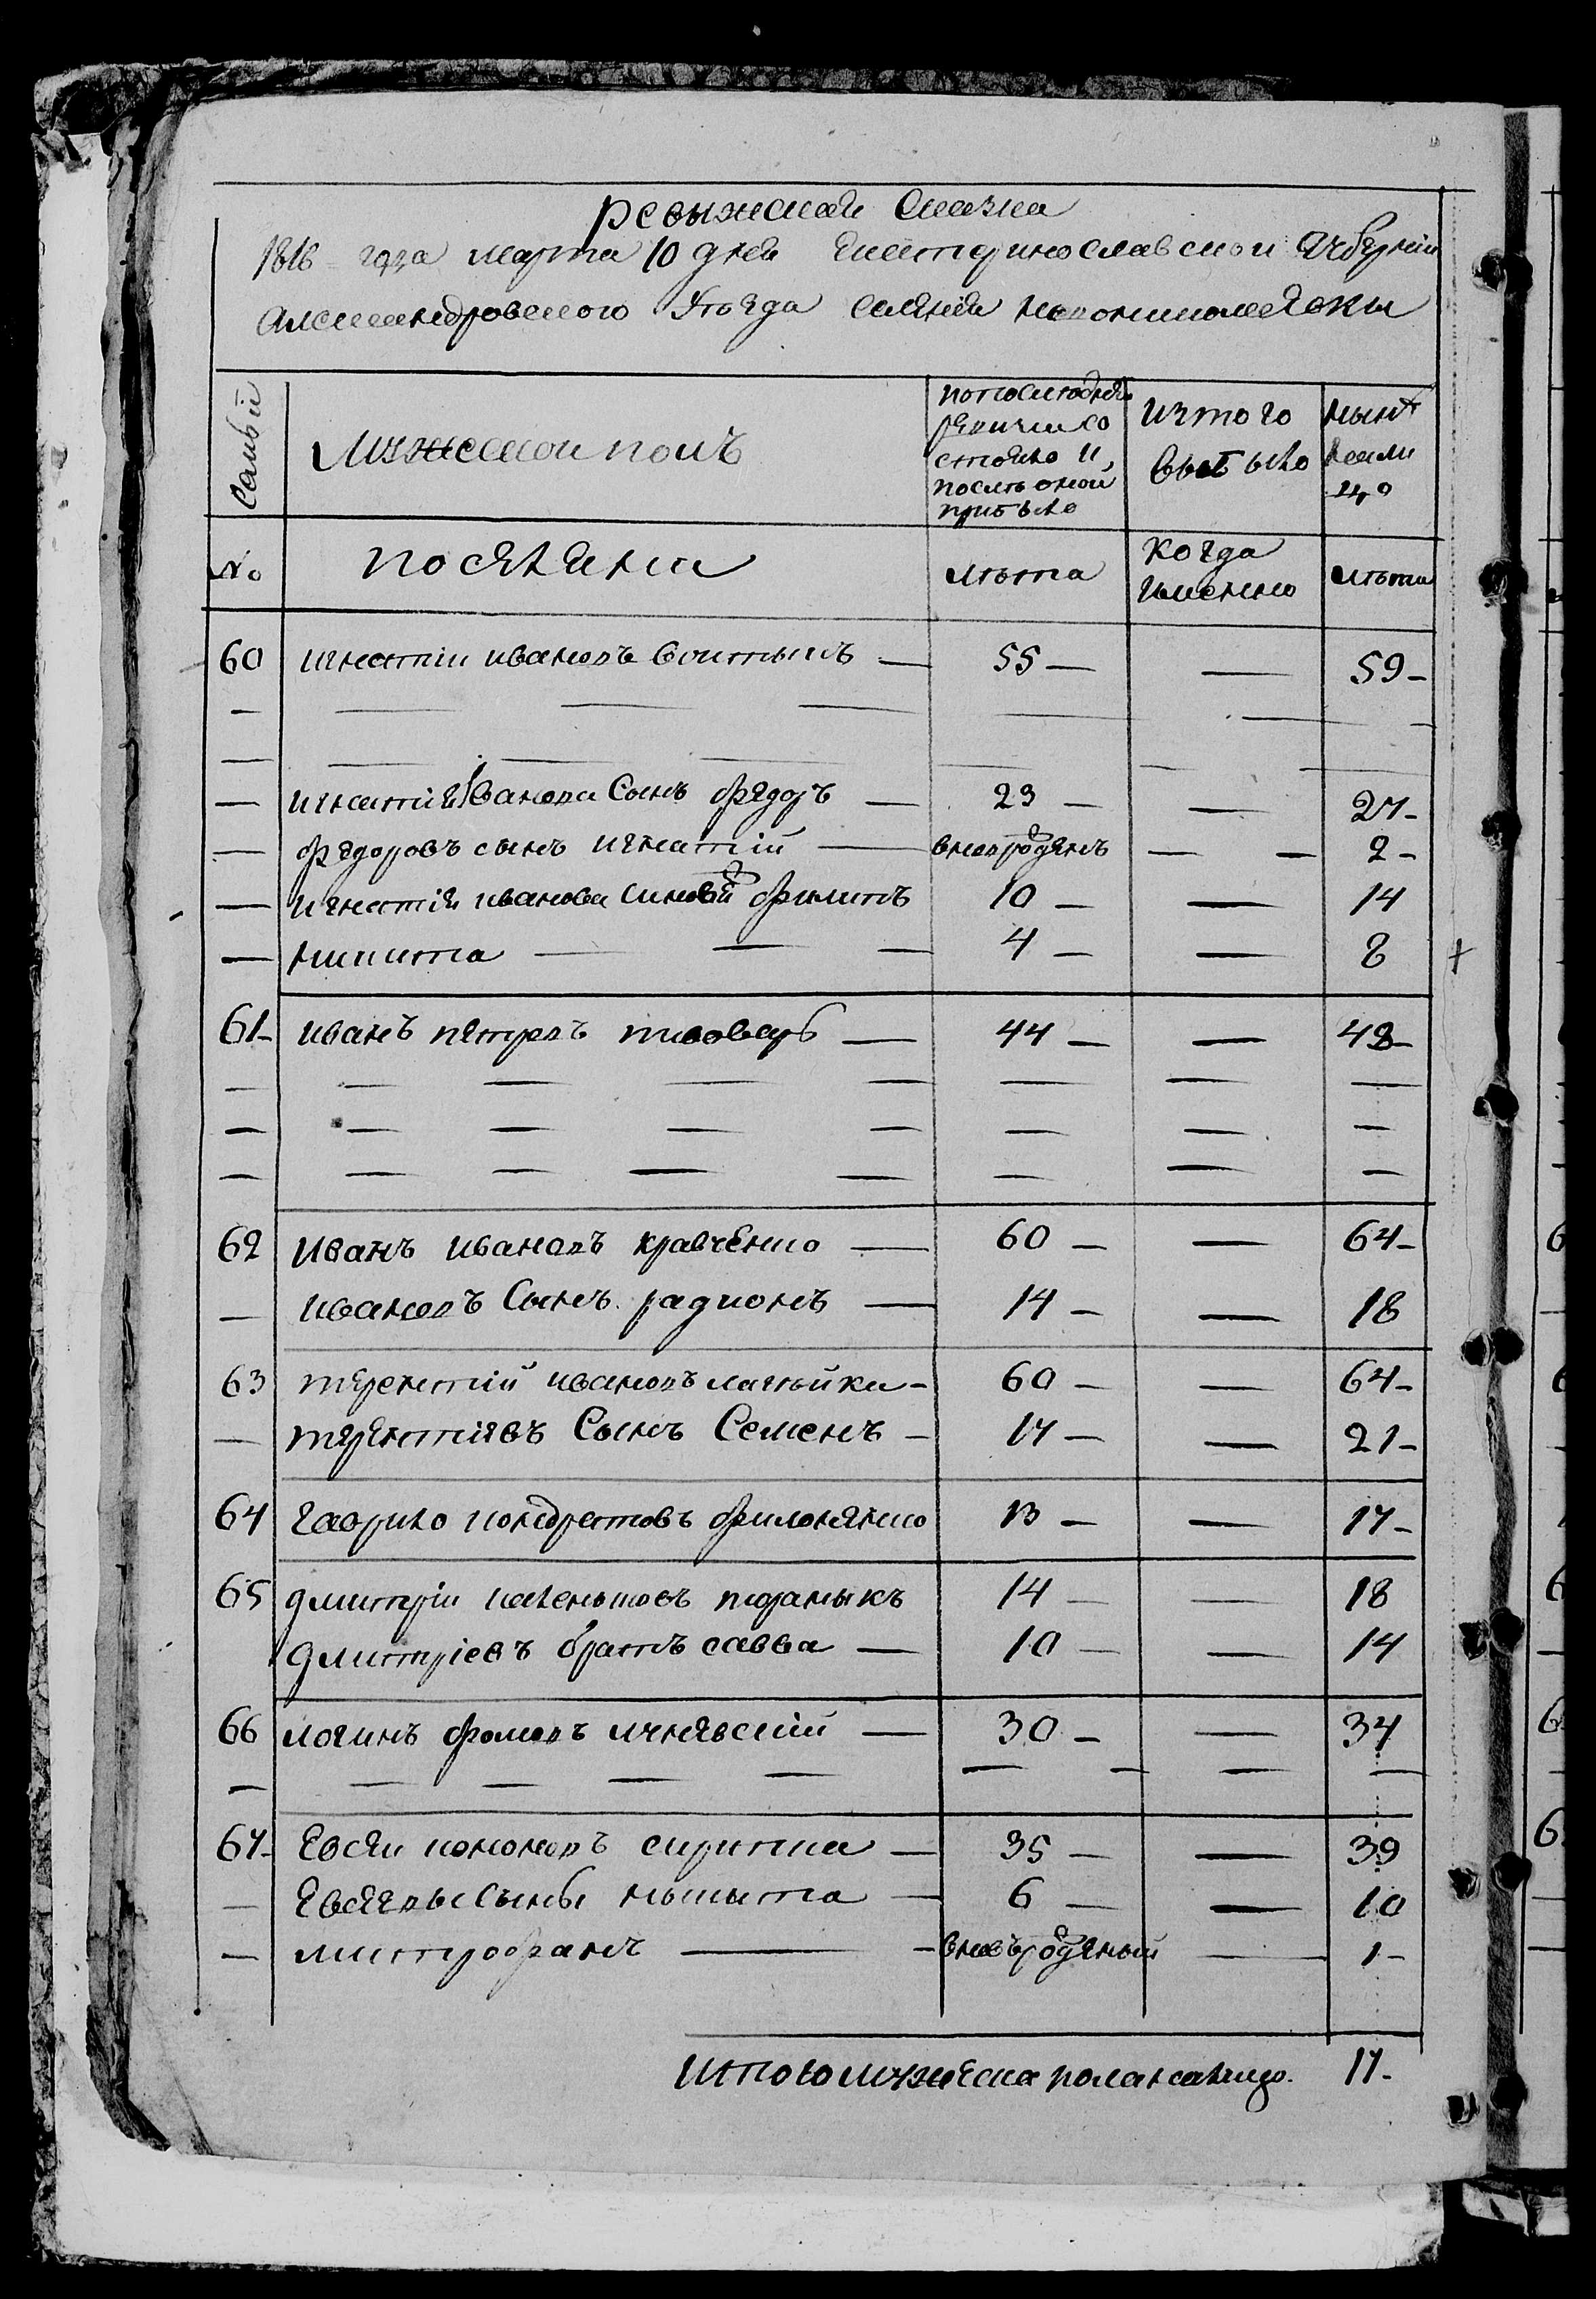 Ревыжская Сказка
1816 года марта 10 дня Екатеринославской Губерніи
Александровского Уезда селения Новониколаевки
Самьи
Мужеской полъ
по последней ревизии состояло и после оной прибыло
из того выбыло
ныне на лицо
№
поселяни
лета
когда именно
лета
60 игнатіи ивановъ 55 — — 59 —
— — — — — — —
— — — — — — —
— игнатия Иванова Сынъ федоръ — 23 — — 27 —
— федоровъ сынъ игнатій — вновь рожденъ — — 2 —
— игнатія иванова синовя филипъ 10 — — 14
— никита — — — 4 — — 8
61 — иванъ петровъ пивоваръ — 44 — — 48 —
— — — — — — — —
— — — — — — — —
— — — — — — — —
62 иванъ ивановъ кравченко — 60 — — 64 —
— ивановъ Сынъ радионъ — 14 — — 18
63 терентій ивановъ — 60 — — 64 —
— терентіевъ Сынъ Семенъ — 17 — — 21 —
64 гаврило кондратовъ филоненко 13 — — 17 —
65 дмитріи 14 — — 18
дмитріевъ братъ савва — 10 — — 14
66 логинъ фомовъ — 30 — — 34
— — — — — — — — —
67 — Евсеи кононовъ — 35 — — 39
— Евсеевы Сыны никита — 6 — — 10
— митрофанъ — — вновь рожденый — 1 —
Итого мужеска пола на лицо. 17 —